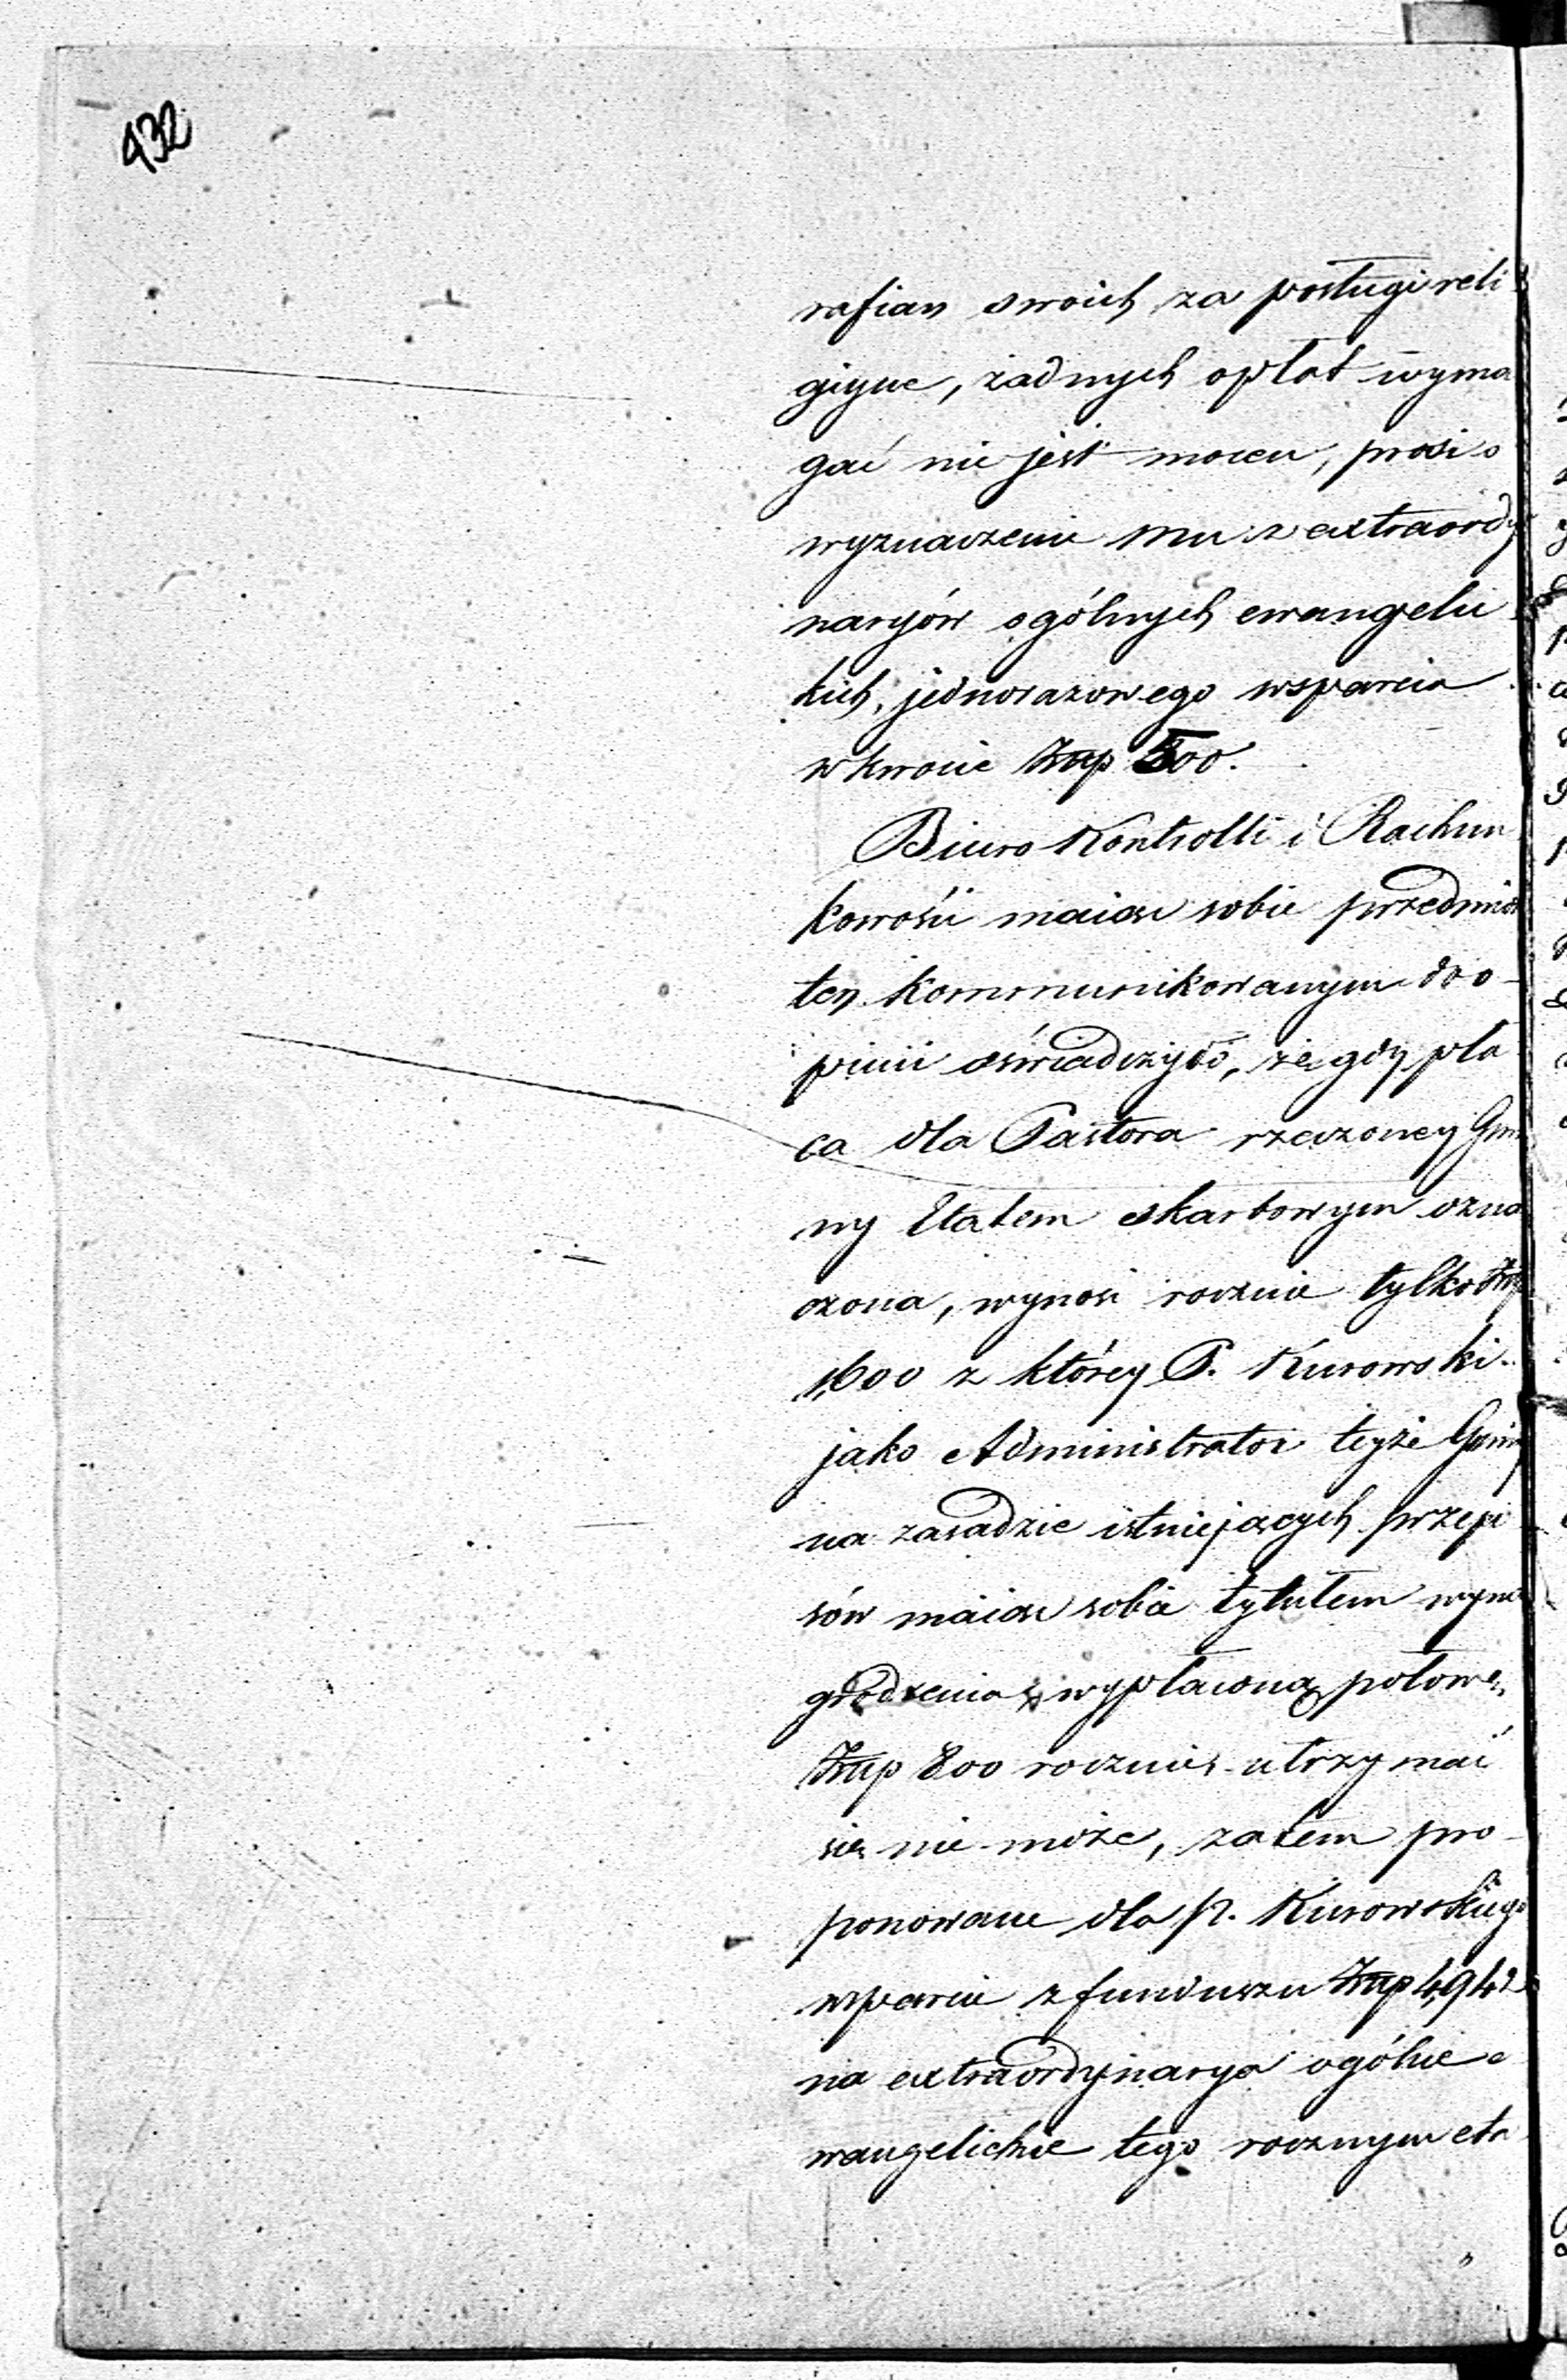 432
rafian swoich za posługi reli
giyne, żadnych opłat wyma
gać nie jest mocen, prosi o
wyznaczenie mu z extraordy
naryów ogólnych ewangelic
kich, jednorazowego wsparcia
w kwocie Złp 500.
Biuro Kontrolli i Rachun
kowości maiąc sobie przedmiot
ten kommunikowanym do o-
pinii oświadczyło, że gdy pła
ca dla Pastora rzeczoney Gmi
ny Etatem skarbowym ozna
czona, wynosi rocznie tylko Złp
1,600 z którey P. Kurowski
jako Administrator teyże Gminy
na zasadzie istniejących przepi
sów maiąc sobie tytułem wyna
grodzenia wypłaconą połowę
Złp 800 rocznie utrzymać
się nie może, zatem pro-
ponowane dla P. Kurowskiego
wparcie z funduszu Złp 4,942
na extraordynarya ogólne e
wangelickie tego rocznym eta